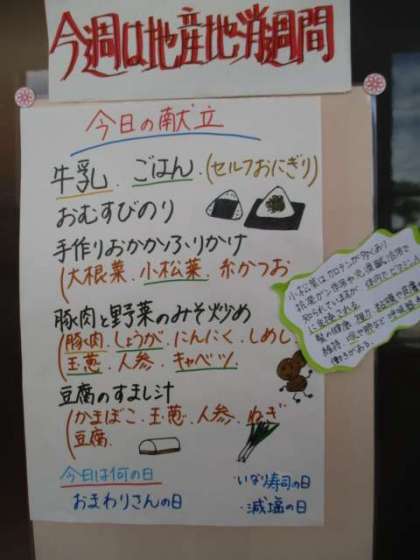 今週は地産地消週間
今日の献立
牛乳．ごはん．(セルフおにぎり)
おむすびのり
手作りおかかふりかけ
(大根菜．小松菜．糸かつお
豚肉と野菜のみそ炒め
(豚肉．しょうが．にんにく．しめじ
玉葱．人参．キャベツ
豆腐のすまし汁
(かまぼこ．玉葱．人参．ねぎ
豆腐
今日は何の日
おまわりさんの日
・いなり寿司の日
・減塩の日
小松菜はカロテンが多くあり
抗発ガン作用や
知られていますが
に変換される
髪の健康
維持
働きがある。